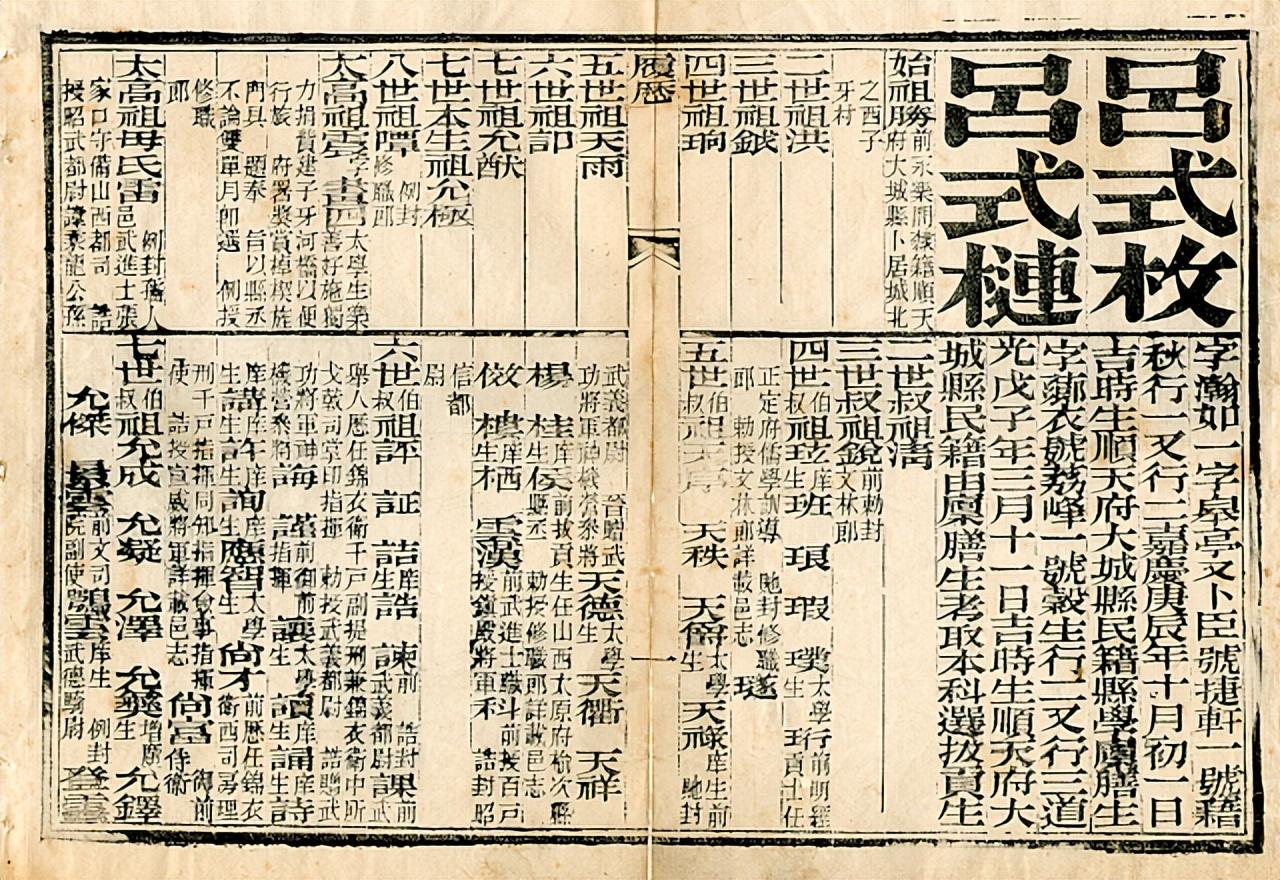 呂式枚
呂式槤
字瀚如一字皋亭又卜臣號捷軒一號籍
秋行一又行二嘉慶庚辰年十月初一日
吉時生順天府大城縣民籍縣學廩膳生
字鄴衣號荔峰一號穀生行二又行三道
光戊子年三月十一日吉時生順天府大
城縣民籍由廩膳生考取本科選拔貢生
始祖勝前永樂間隸籍順天
府大城縣卜居城北
之西子
牙村
二世祖洪
三世祖鉞
四世祖珣
二世叔祖清
三世叔祖銳前勅封
文林郎
四世伯叔祖班 琅 瑕 璞
太學生
行前明經
正定府儒學訓導 馳封修職
郎 勅授文林郎詳載邑志
五世伯叔祖 天秩 天僑太學生 天祿庠生前
馳封
履歷
五世祖天雨
六世祖訒
七世祖允猷
七世本生祖允極
八世祖譚例封
修職郎
太高祖雲字 書四太學生樂
善好施獨
力捐資建子牙河橋以便
行旅 府署獎賞棹楔旌
門具 題奉 旨以縣丞
不論雙單月卽選 例授
修職
郎
太高祖母氏雷例封孺人
邑武進士張
家口守備山西都司 誥
授昭武都尉諱襲龍公孫
武義都尉 晉贈武
功將軍神機營參將天德太學生 天衢 天祥
楊 桂庠生 侯前拔貢生任山西太原府榆次縣
縣丞 勅授修職郎詳載邑志
俊 樓庠生 栖 雲漢前武進士職科前授百戶
授鎮殿將軍科 誥封昭
信都
尉
六世伯叔祖評 証 詰庠生 誥 諫前 誥封
武義都尉 課前武
舉人歷任錦衣衛千戶副提刑兼錦衣衛中所
戈戟司掌印指揮 勅授武義都尉 誥贈武
功將軍神
機營參將 誨 謹前御前
指揮 讓太學生 讀庠生 誦庠生 詩
庠生 講庠生 許庠生 詢庠生 應智太學生 尙才前歷任錦衣
衛西司房理
刑千戶指揮同知指揮僉事指揮
使 誥授宣威將軍詳載邑志 尙富御前
侍衛
七世伯叔祖允成 允凝 允澤 允彝增廩生 允鐸
允傑 景雲前文司
院副使 鶚雲庠生 例封
武德騎尉 登雲